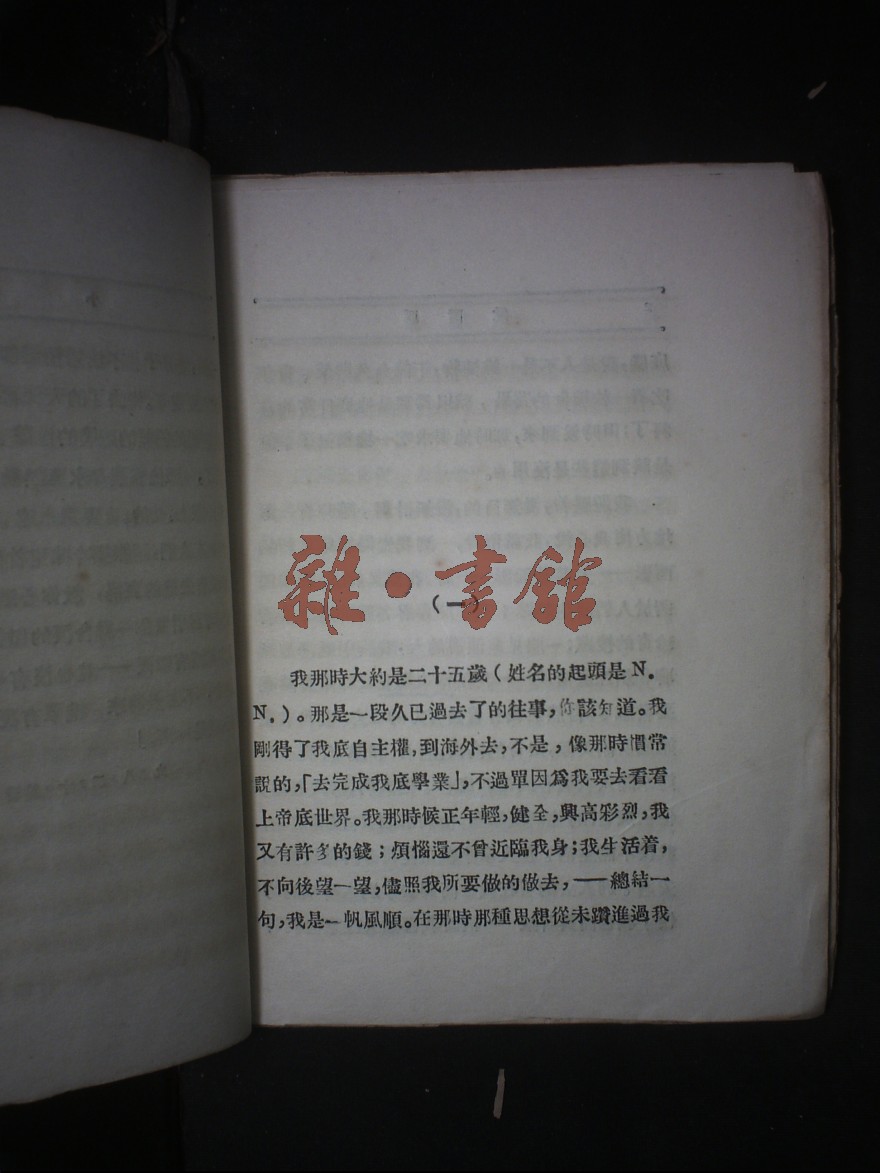 雜•書館
(一)
我那時大約是二十五歲(姓名的起頭是N.
N.)。那是一段久已過去了的往事,你該知道。我
剛得了我底自主權,到海外去,不是,像那時慣常
說的,「去完成我底學業」,不過單因爲我要去看看
上帝底世界。我那時候正年輕,健全,興高彩烈,我
又有許多的錢;煩惱還不曾近臨我身;我生活着,
不向後望一望,儘照我所要做的做去,——總結一
句,我是一帆風順。在那時那種思想從未鑽進過我